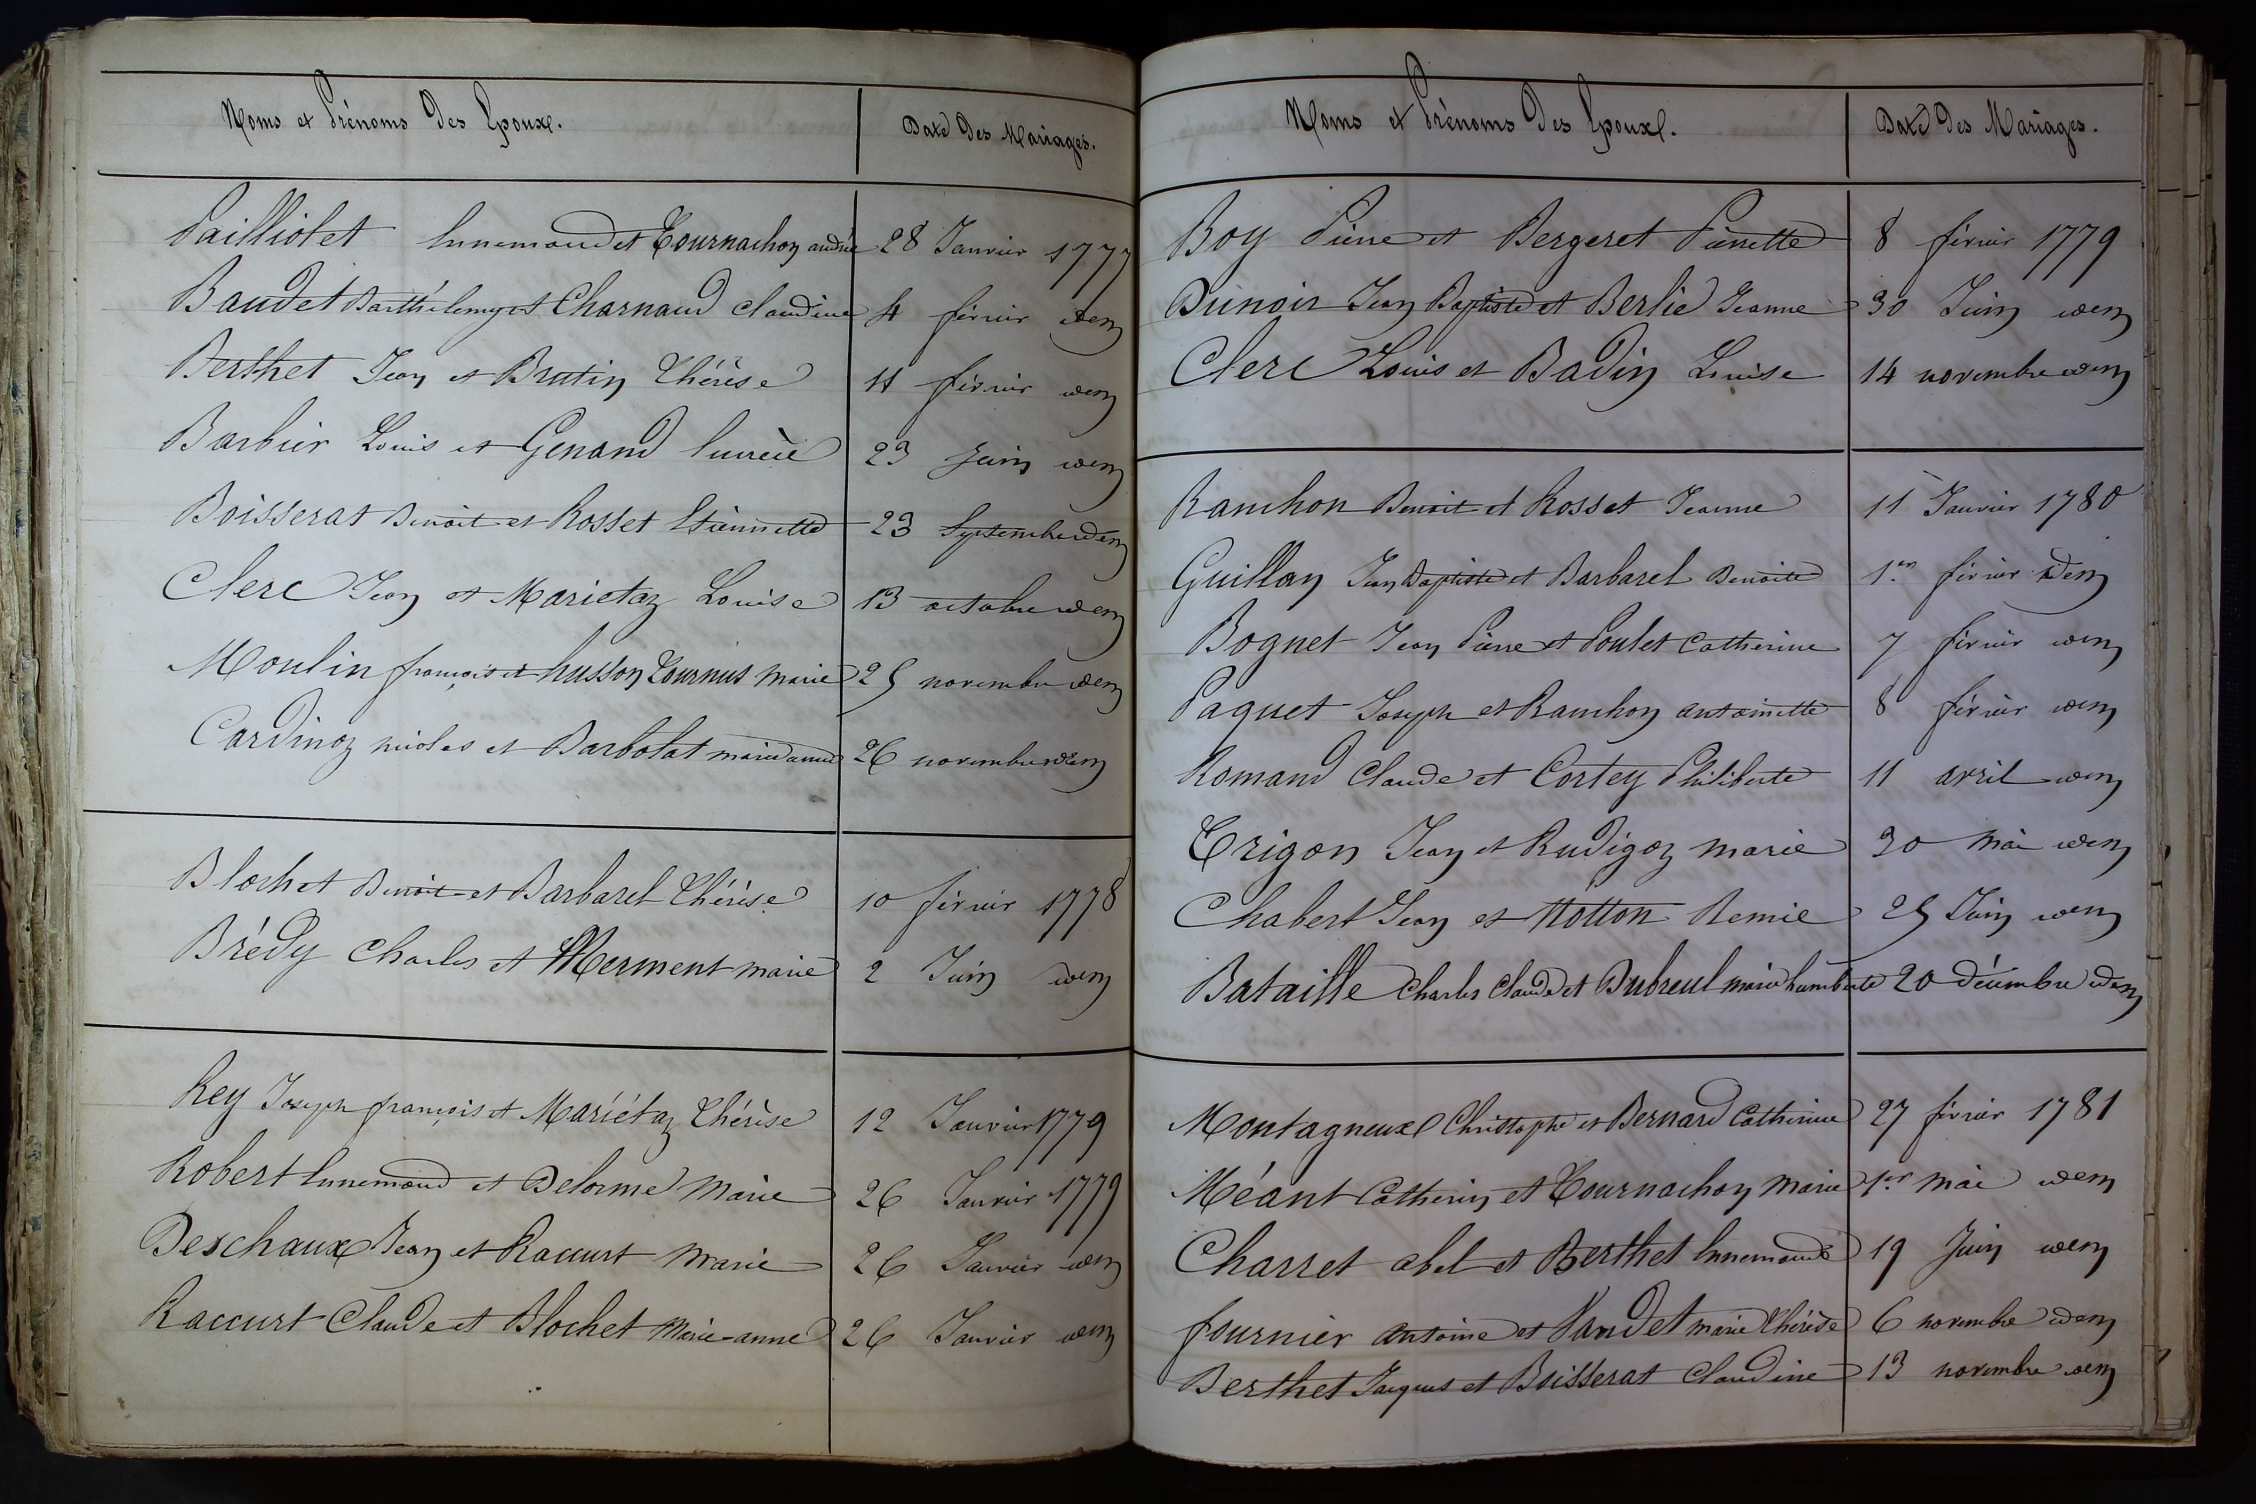 Noms et Prénoms Des Epoux.
Date Des Mariages.
Pailliotet Ennemond et Tournachon andrée 28 Janvier 1777
Baudet Barthélemy et Charnaud Claudine 4 février idem
Berthet Jean et Brutin Thérèse 11 février idem
Barbier Louis et Genand Lucrèce 23 Juin idem
Boisserat Benoit et Rosset Etiennette 23 Septembre idem
Clerc Jean et Marietaz Louise 13 octobre idem
Moulin françois et husson Tournus Marie 25 novembre idem
Cardinoz nicolas et Barbolat marie anne 26 novembre idem
Blochet Benoit et Barbarel Thérèse 10 février 1778
Brédy Charles et Merment marie 2 Juin idem
Rey Joseph françois et Mariétaz Thérèse 12 Janvier 1779
Robert Ennemond et Delorme Marie 26 Janvier 1779
Deschaux Jean et Raccurt Marie 26 Janvier idem
Raccurt Claude et Blochet Marie-anne 26 Janvier idem
Noms et Prénoms Des Epoux.
Date Des Mariages.
Boy Pierre et Bergeret Pierrette 8 février 1779
Dunoir Jean Baptiste et Berlie Jeanne 30 Juin idem
Clerc Louis et Badin Louise 14 novembre idem
Ranchon Benoit et Rosset Jeanne 11 Janvier 1780
Guillon Jean Baptiste et Barbarel Benoite 1er février idem
Bognet Jean Pierre et Poulet Catherine 7 février idem
Paquet Joseph et Ranchon antoinette 8 février idem
Romand Claude et Cortey Philiberte 11 avril idem
Trigon Jean et Rudigoz marie 30 mai idem
Chabert Jean et Notton Remie 25 Juin idem
Bataille Charles Claude et Dubreul marie humberte 20 décembre idem
Montagneux Christophe et Bernard Catherine 27 février 1781
Méant Catherin et Tournachon Marie 1er mai idem
Charret abel et Berthet Ennemonde 19 Juin idem
fournier antoine et Vandet marie Thérèse 6 novembre idem
Berthet Jacques et Boisserat Claudine 13 novembre idem